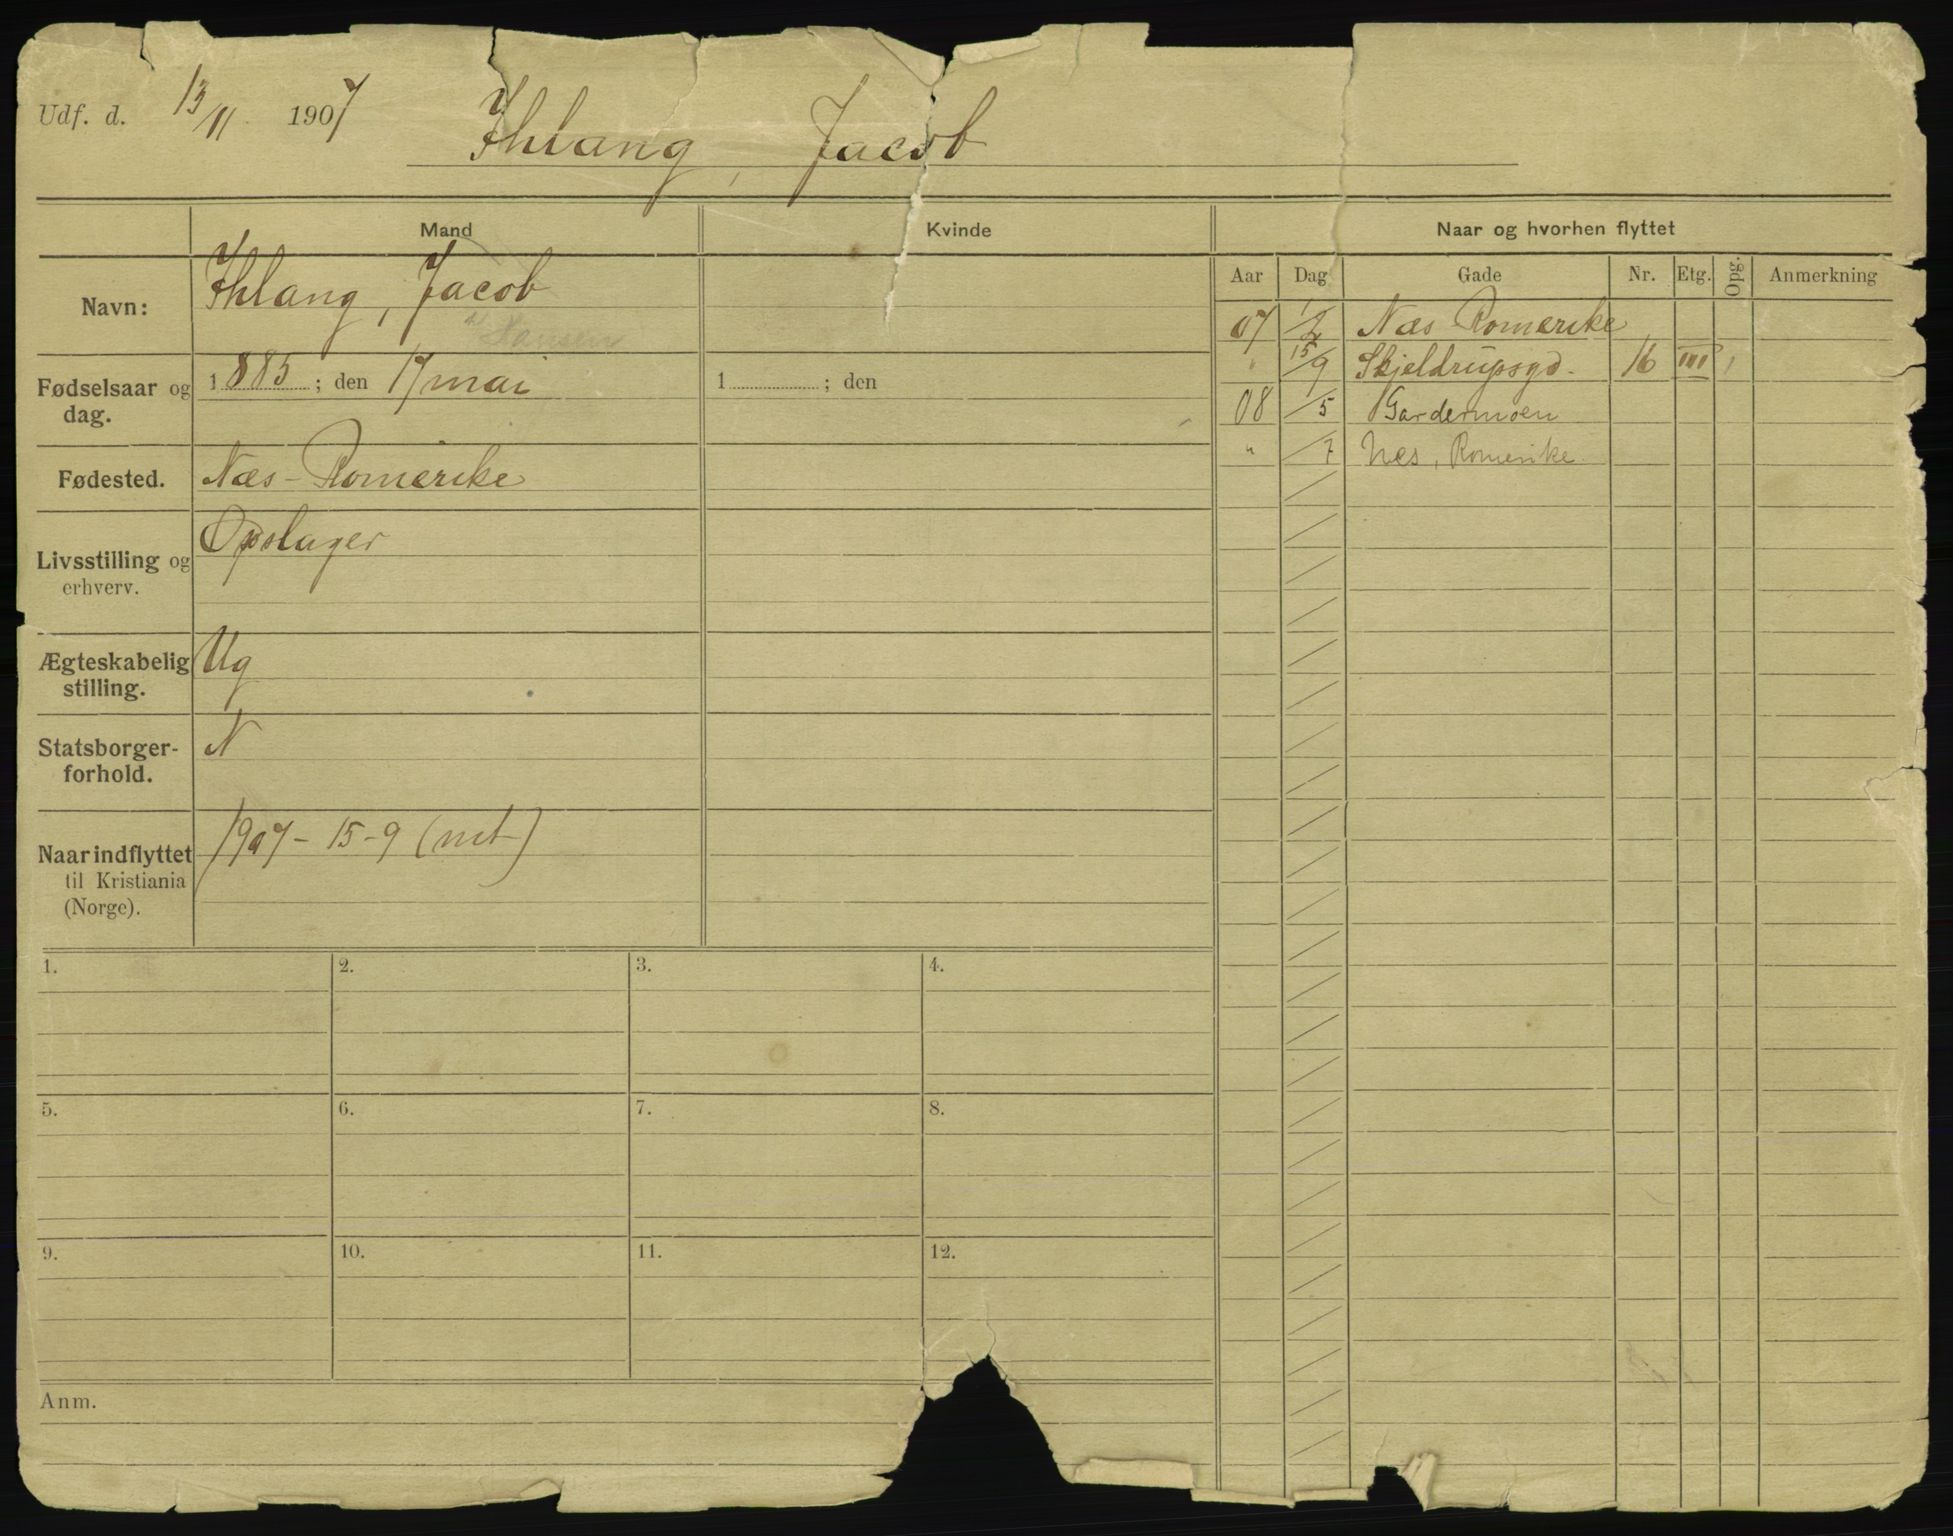 Udf. d. 13/11 1907
Ihlang, Jacob
Mand
Kvinde
Naar og hvorhen flyttet
Navn:
Ihlang, Jacob
Hansen
Fødselsaar og dag.
1885; den 17 mai
1 ; den
Fødested.
Næs - Romerike
Livsstilling og erhverv.
Opslager
Ægteskabelig stilling.
Ug
Statsborgerforhold.
N
Naar indflyttet til Kristiania (Norge).
1907 - 15-9 (mt)
Aar Dag Gade Nr. Etg. Opg. Anmerkning
07 1/2 Næs Romerike
" 15/9 Skjeldrupsgd. 16 III 1
08 /5 Gardermoen
" /7 Nes, Romerike.
1. 2. 3. 4.
5. 6. 7. 8.
9. 10. 11. 12.
Anm.